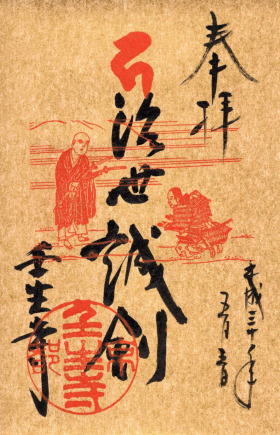 奉拝
治世誠剣
平成三十年
五月
壬生寺
壬生寺